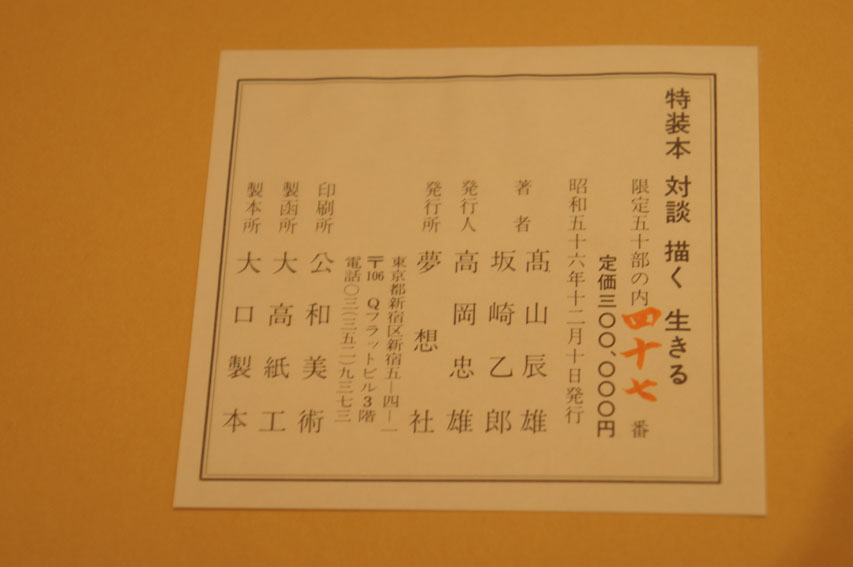 特装本 対談 描く 生きる
限定五十部の内 四十七 番
定価三〇〇、〇〇〇円
昭和五十六年十二月十日発行
著者 髙山辰雄
坂崎乙郎
発行人 高岡忠雄
発行所 夢想社
東京都新宿区新宿五—四—一
〒106 Qフラットビル3階
電話〇三(三五二)九三七三
印刷所 公和美術
製函所 大高紙工
製本所 大口製本